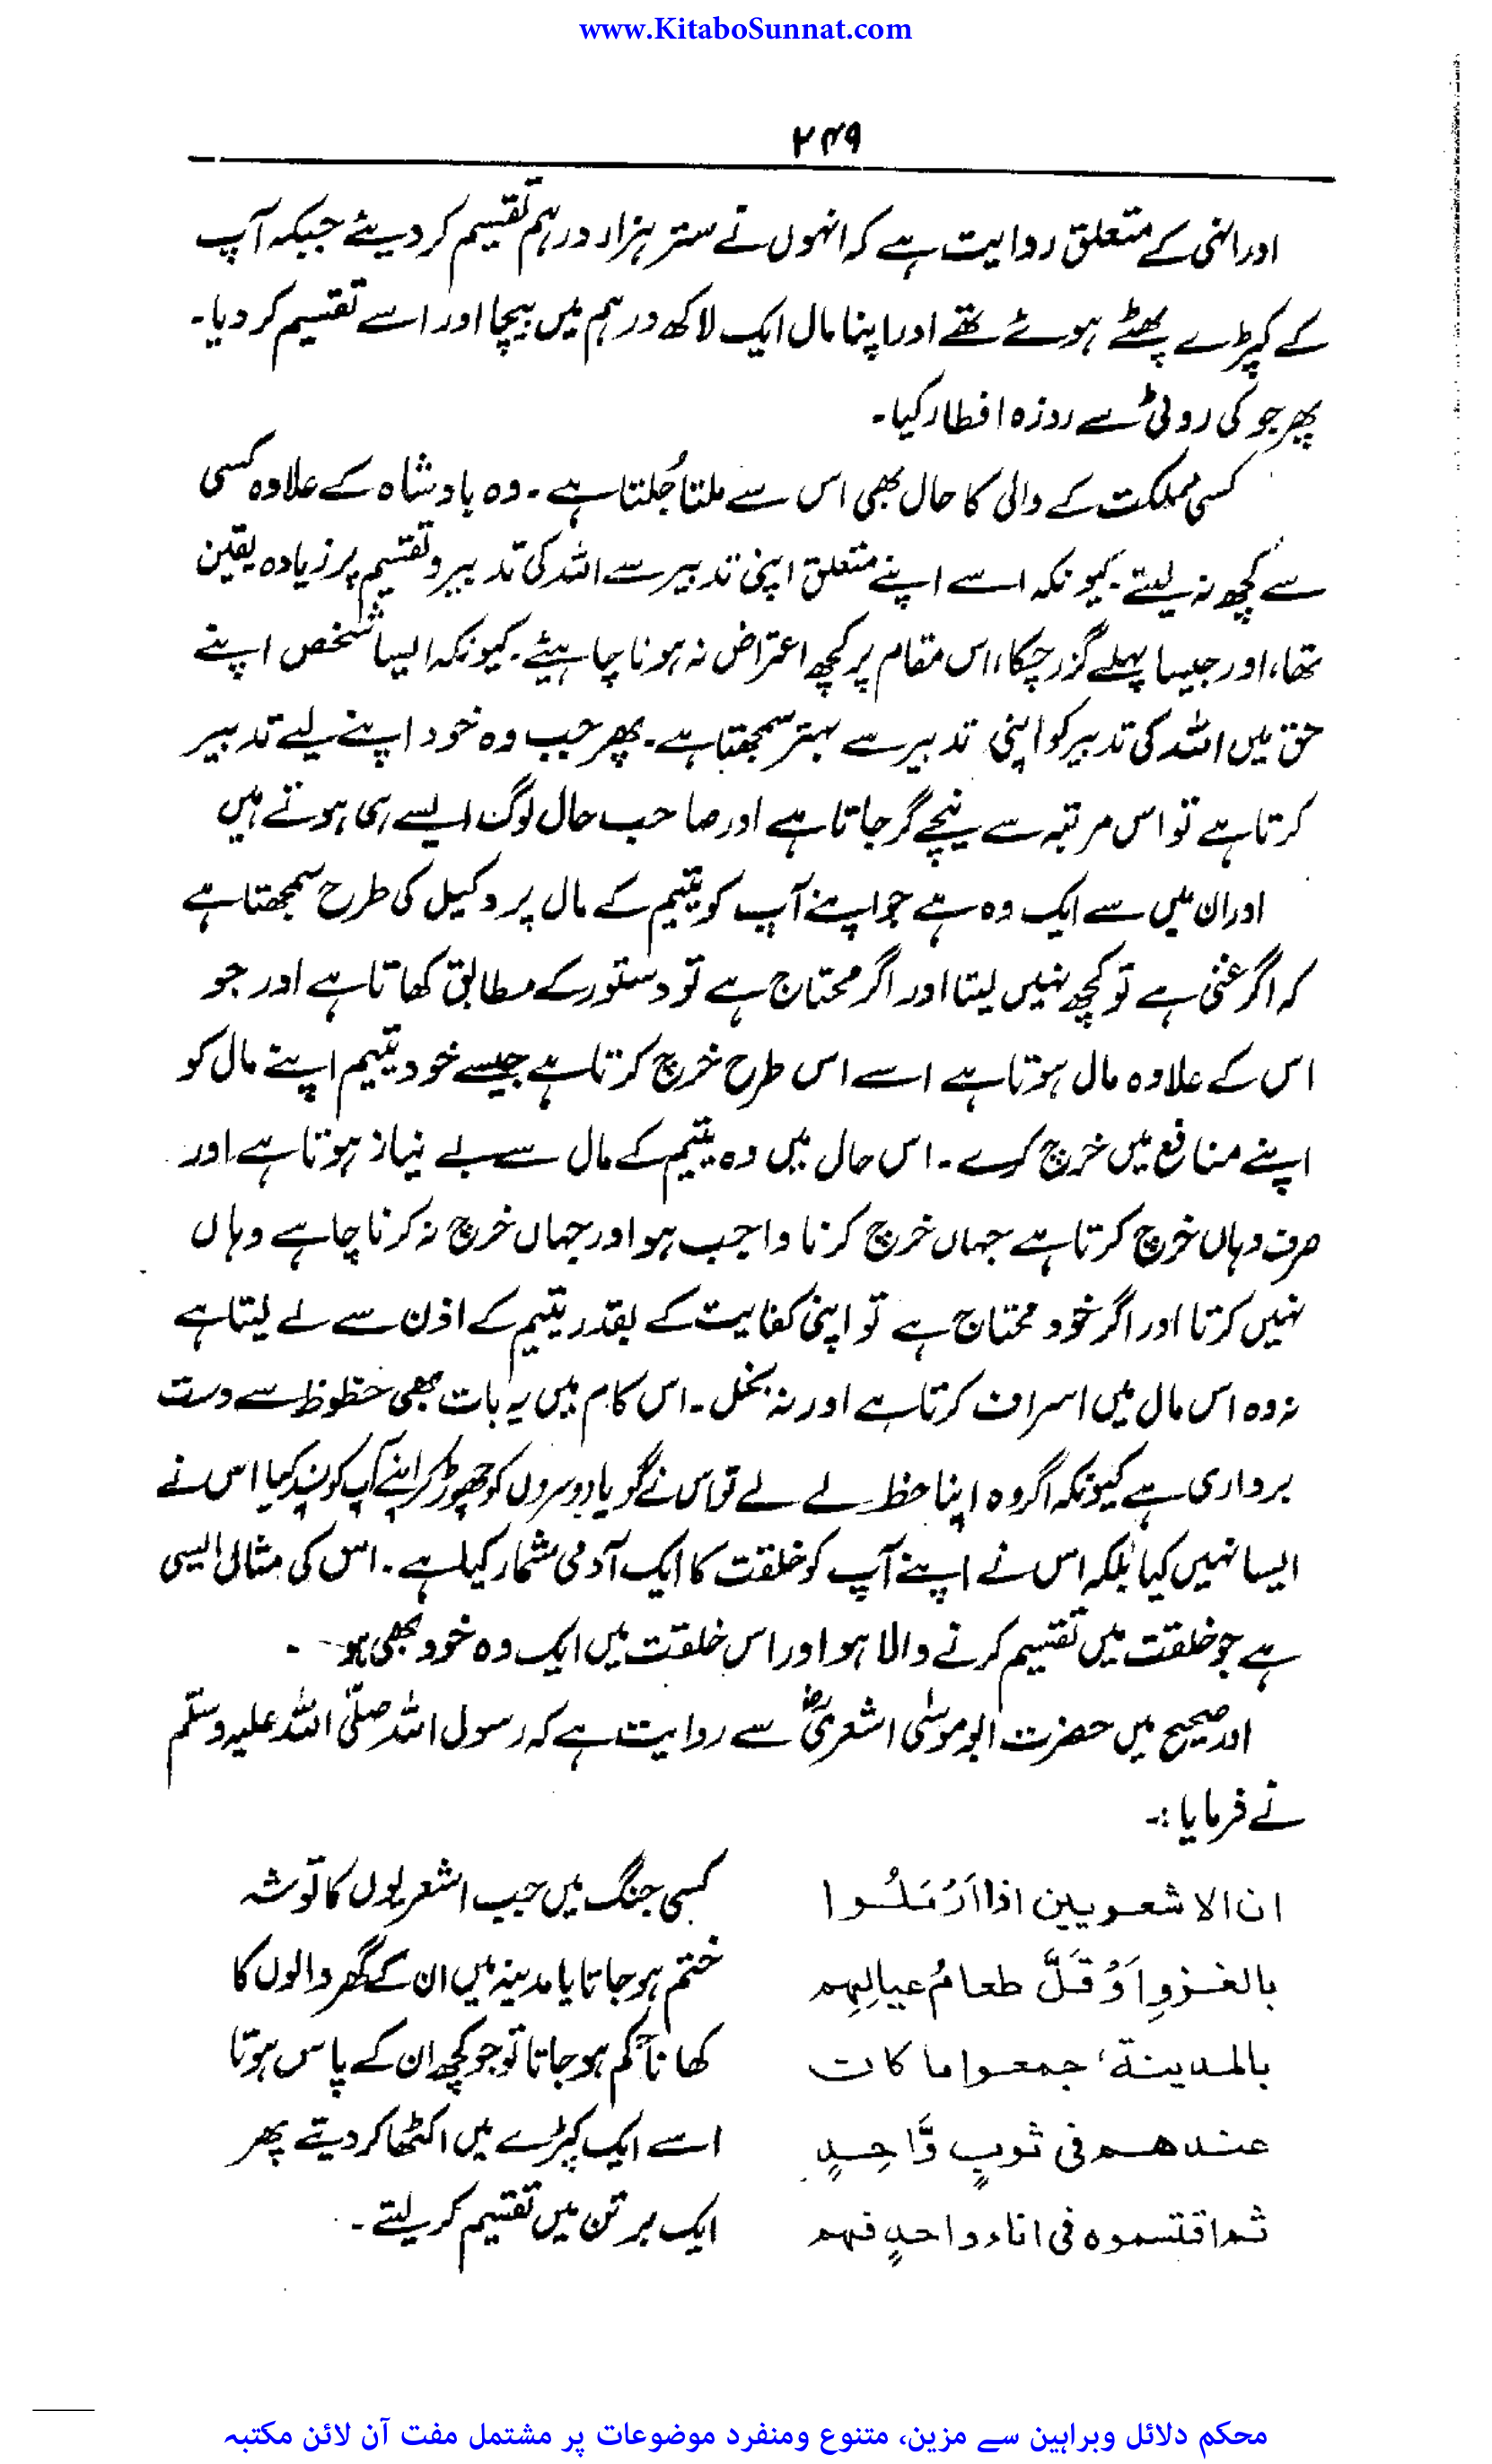 www.KitaboSunnat.com
۲۴۹
اور انہی کے متعلق روایت ہے کہ انہوں نے ستر ہزار درہم تقسیم کر دیئے جبکہ آپ
کے کپڑے پھٹے ہوئے تھے اور اپنا مال ایک لاکھ درہم میں بیچا اور اسے تقسیم کر دیا۔
پھر جو کی روٹی سے روزہ افطار کیا۔
کسی مملکت کے والی کا حال بھی اس سے ملتا جُلتا ہے۔ وہ بادشاہ کے علاوہ کسی
سے کچھ نہ لیتے۔ کیونکہ اسے اپنے متعلق اپنی تدبیر سے اللہ کی تدبیر و تقسیم پر زیادہ یقین
تھا، اور جیسا پہلے گزر چکا، اس مقام پر کچھ اعتراض نہ ہونا چاہیئے۔ کیونکہ ایسا شخص اپنے
حق میں اللہ کی تدبیر کو اپنی تدبیر سے بہتر سمجھتا ہے۔ پھر جب وہ خود اپنے لیے تدبیر
کرتا ہے تو اس مرتبہ سے نیچے گر جاتا ہے اور صاحب حال لوگ ایسے ہی ہوتے ہیں
اور ان میں سے ایک وہ ہے جو اپنے آپ کو یتیم کے مال پر وکیل کی طرح سمجھتا ہے
کہ اگر غنی ہے تو کچھ نہیں لیتا اور اگر محتاج ہے تو دستور کے مطابق کھاتا ہے اور جو
اس کے علاوہ مال ہوتا ہے اسے اس طرح خرچ کرتا ہے جیسے خود یتیم اپنے مال کو
اپنے منافع میں خرچ کرے۔ اس حال میں وہ یتیم کے مال سے بے نیاز ہوتا ہے اور
صرف وہاں خرچ کرتا ہے جہاں خرچ کرنا واجب ہو اور جہاں خرچ نہ کرنا چاہے وہاں
نہیں کرتا اور اگر خود محتاج ہے تو اپنی کفایت کے بقدر یتیم کے اذن سے لے لیتا ہے
نہ وہ اس مال میں اسراف کرتا ہے اور نہ بخل۔ اس کام میں یہ بات بھی حظوظ سے دست
برداری ہے کیونکہ اگر وہ اپنا حظ لے لے تو اس نے گویا دوسروں کو چھوڑ کر اپنے آپ کو پسند کیا اس نے
ایسا نہیں کیا بلکہ اس نے اپنے آپ کو خلقت کا ایک آدمی شمار کیا ہے۔ اس کی مثال ایسی
ہے جو خلقت میں تقسیم کرنے والا ہو اور اس خلقت میں ایک وہ خود بھی ہو۔
اور صحیح میں حضرت ابو موسٰی اشعریؓ سے روایت ہے کہ رسول اللہ صلّی اللہ علیہ وسلّم
نے فرمایا:۔
ان الاشعریین اذا اَرْمَلُوا
بالغزوِ اَوْ قَلَّ طعامُ عیالِهِم
بالمدینة، جمعوا ما کان
عندهم فی ثوبٍ وَّاحِدٍ
ثم اقتسموه فی اناء واحدٍ فهم
کسی جنگ میں جب اشعریوں کا توشہ
ختم ہو جاتا یا مدینہ میں ان کے گھر والوں کا
کھانا کم ہو جاتا تو جو کچھ ان کے پاس ہوتا
اسے ایک کپڑے میں اکٹھا کر دیتے پھر
ایک برتن میں تقسیم کر لیتے۔
محکم دلائل وبراہین سے مزین، متنوع ومنفرد موضوعات پر مشتمل مفت آن لائن مکتبہ